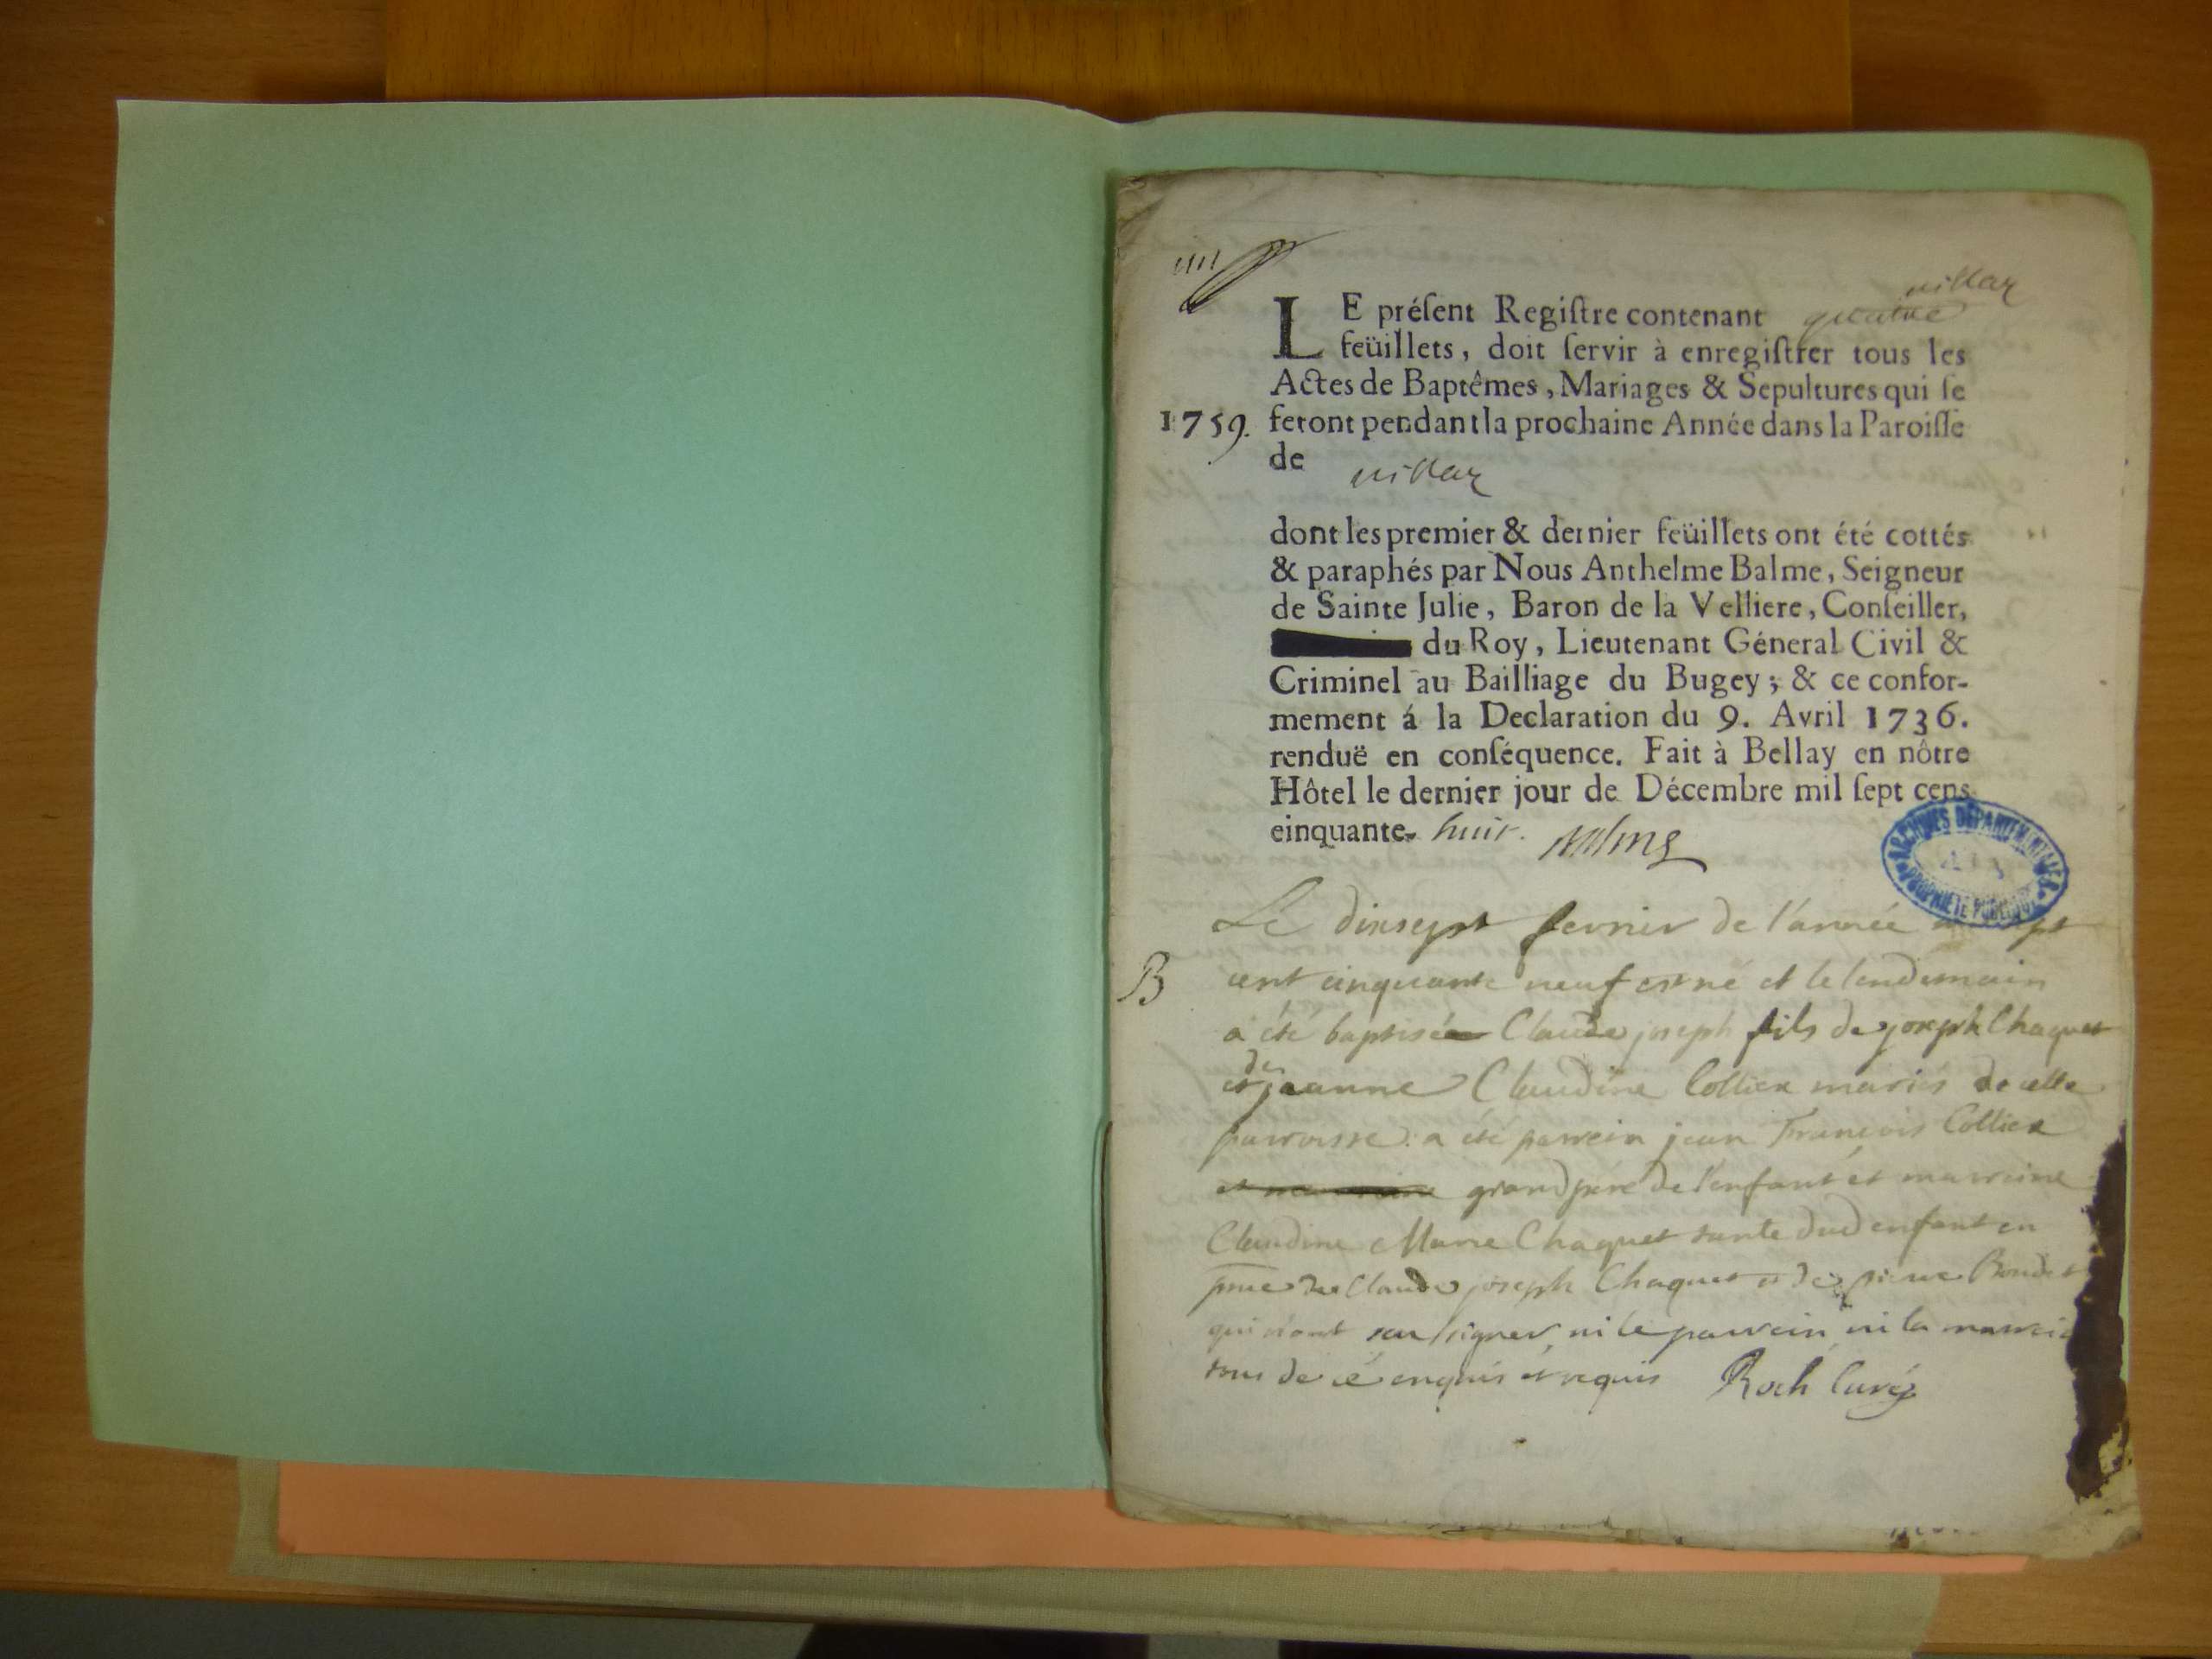 IIII
villaz
LE préſent Regiſtre contenant quatre
feüillets, doit ſervir à enregiſtrer tous les
Actes de Baptêmes, Mariages & Sepultures qui ſe
1759. feront pendant la prochaine Année dans la Paroiſſe
de villaz
dont les premier & dernier feüillets ont été cottés
& paraphés par Nous Anthelme Balme, Seigneur
de Sainte Julie, Baron de la Velliere, Conſeiller,
du Roy, Lieutenant Géneral Civil &
Criminel au Bailliage du Bugey; & ce confor-
mement á la Declaration du 9. Avril 1736.
renduë en conſéquence. Fait à Bellay en nôtre
Hôtel le dernier jour de Décembre mil ſept cens
cinquante- huit. Balme
ARCHIVES DEPARTEMENTALES
PROPRIETE PUBLIQUE
Le dixsept fevrier de l'année sept
B cent cinquante neuf est né et le lendemain
a été baptisé Claude joseph fils de joseph Chaquet
et de jeanne Claudine Collier mariés de cette
parroisse: a été parrein jean François Collier
grand pere de l'enfant et marreine
Claudine Marie Chaquet tante dud enfant en
pnce de Claude joseph Chaquet et de pierre
qui n'ont scu signer, ni le parrein, ni la
tous de ce enquis et requis Roch Curé